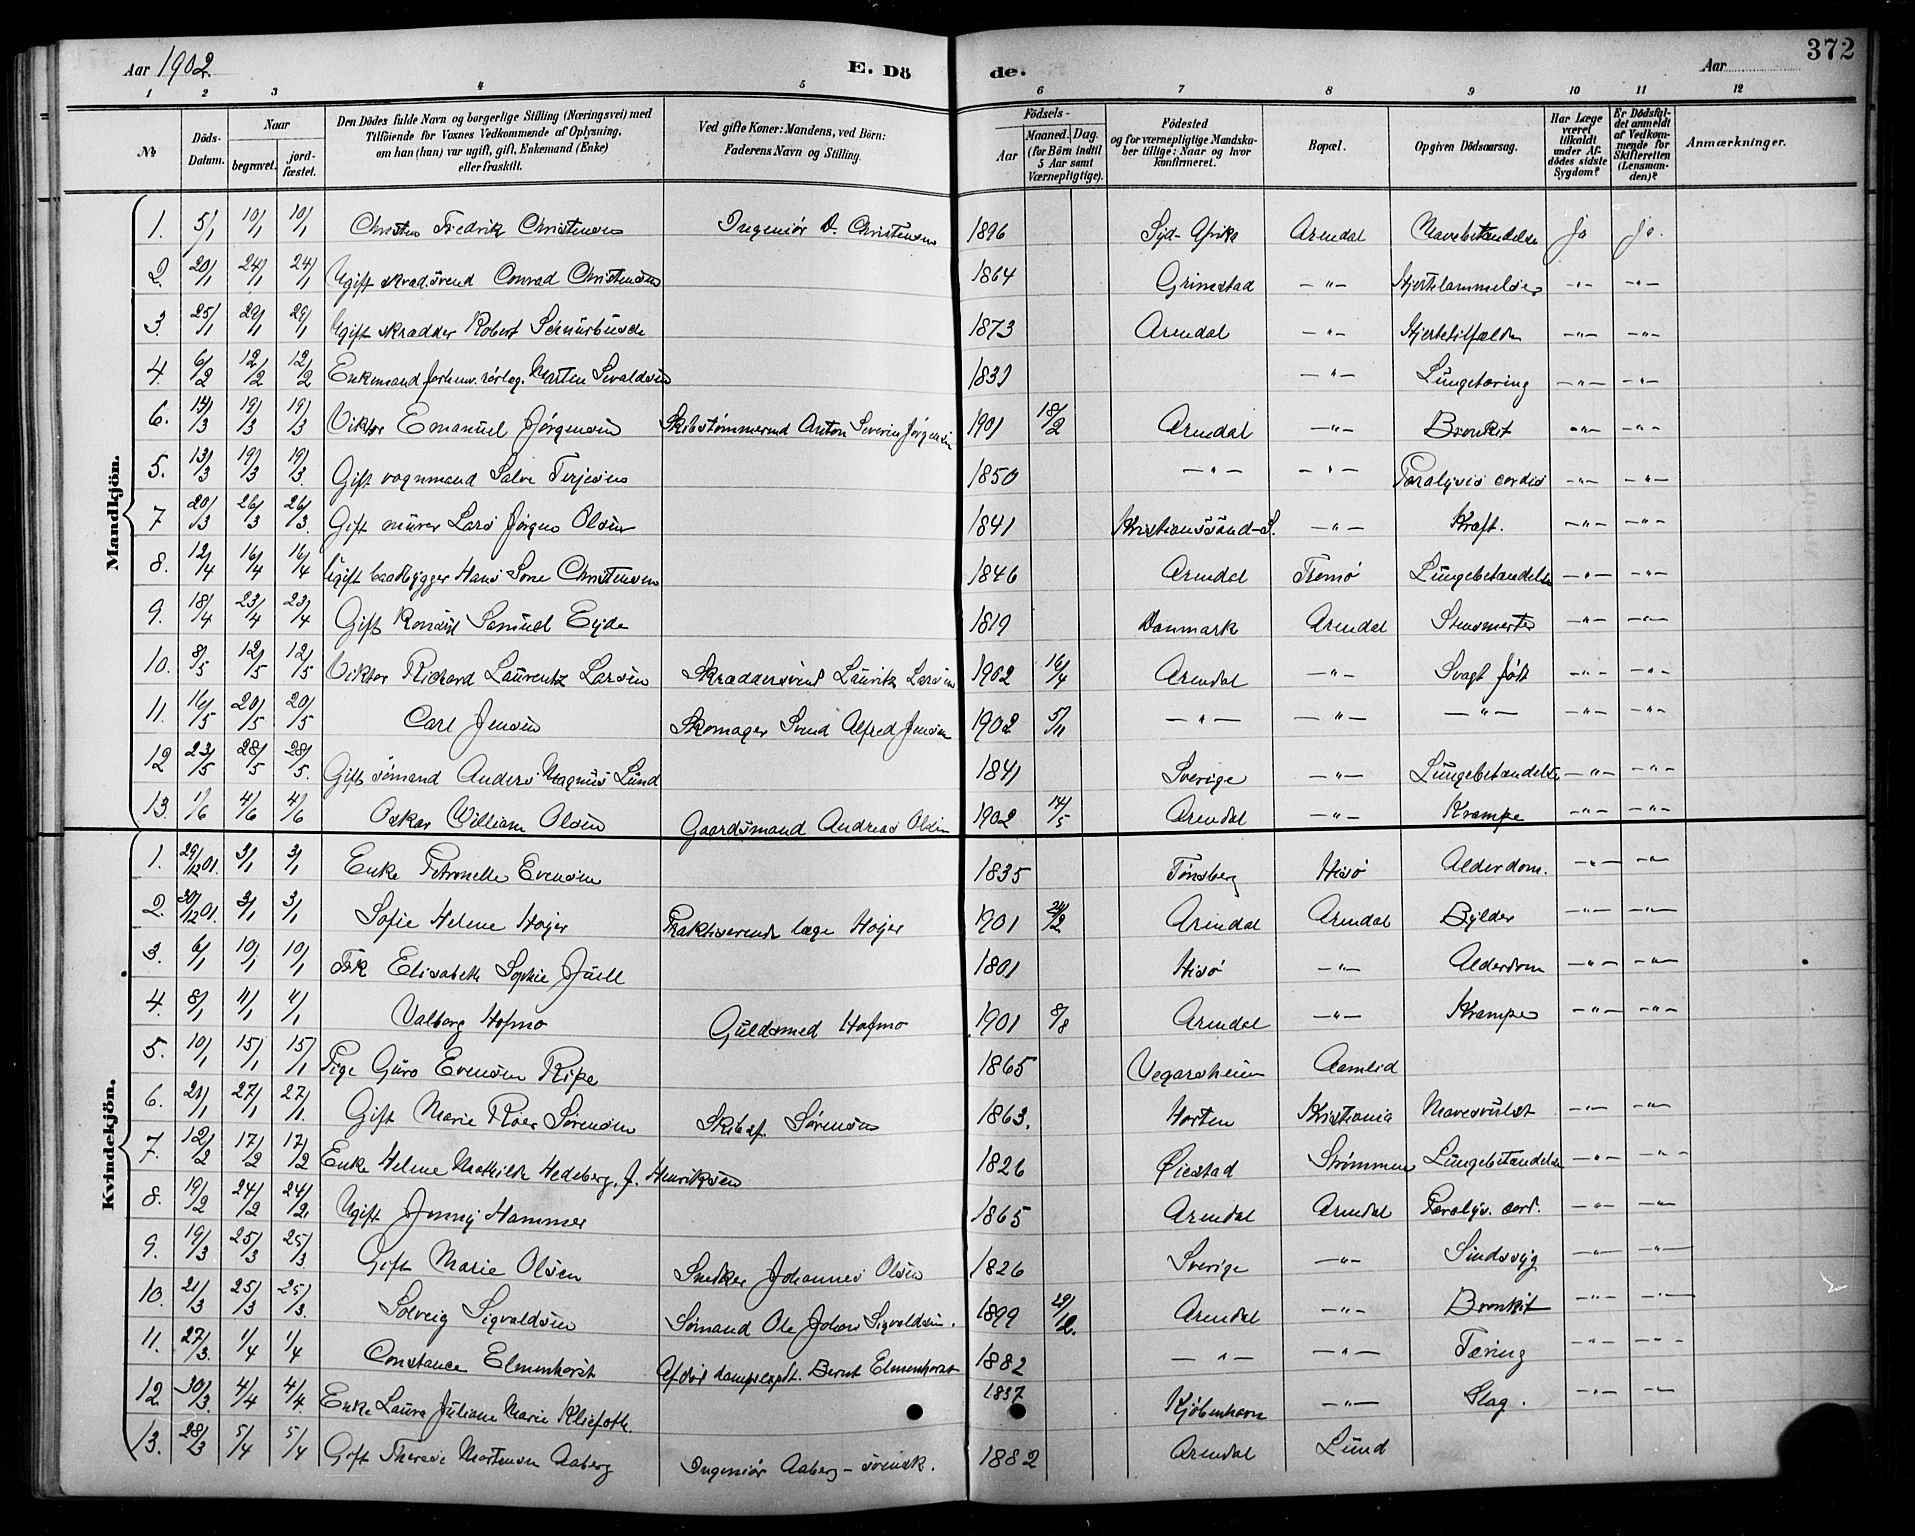 Aar 1902. E. Dö de. Aar 372
1 2 3 4 5 6 7 8 9 10 11 12
№
Döds-Datum.
Naar
begravet.
jordfæstet.
Den Dödes fulde Navn og borgerlige Stilling (Næringsvei) med
Tilföiende for Voxnes Vedkommende af Oplysning,
om han (hun) var ugift, gift, Enkemand (Enke)
eller fraskilt.
Ved gifte Koner: Mandens, ved Börn:
Faderens Navn og Stilling.
Födsels-
Aar
Maaned. Dag.
(for Börn indtil
5 Aar samt
Værnepligtige).
Födested
og for værnepligtige Mandskaber tillige: Naar og hvor
konfirmeret.
Bopæl.
Opgiven Dödsaarsag.
Har Læge
været
tilkaldt
under Afdödes sidste
Sygdom?
Er Dödsfaldet anmeldt
af Vedkommende for
Skifteretten
(Lensmanden)?
Anmærkninger.
Mandkjön.
1. 5/1 10/1 10/1 Christen Fredrik Christensen Ingeniør D. Christensen 1896 Syd-Afrika Arendal Mavebetændelse Ja Ja.
2. 20/1 24/1 24/1 Ugift skræd.svend Conrad Christensen 1864 Grimstad -"- Hjertelammelse -"- -"-
3. 25/1 29/1 29/1 Ugift skrædder Robert Schnurbusch 1873 Arendal -"- Hjertetilfælde -"- -"-
4. 6/2 12/2 12/2 Enkemand forhenv. rørlæg. Marten Sivaldsen -"- Lungetæring -"- -"-
6. 14/3 19/3 19/3 Viktor Emanuel Jørgensen Skibstømmermd Anton Severin Jørgensen 1901 18/2 Arendal -"- Bronkit -"- -"-
5. 13/3 19/3 19/3 Gift vognmand Salve Terjesen 1850 -"- -"- Paralysis cordis -"- -"-
7 20/3 26/3 26/3. Gift murer Lars Jørgen Olsen 1841 Kristianssund-S. -"- Kræft. -"- -"-
8. 12/4 16/4 16/4 Ugift baadbygger Hans Sone Christensen 1846 Arendal Tromø Lungebetændelse -"- -"-
9. 18/4 23/4 23/4 Gift Konsul Samuel Eyde 1819 Danmark Arendal Stensmerter -"- -"-
10. 8/5 12/5 12/5 Viktor Richard Laurentz Larsen Skræddersvend Lauritz Larsen 1902 16/4 Arendal -"- Svagt født -"- -"-
11. 16/5 20/5 20/5 Carl Jensen Skomager Svend Alfred Jensen 1902 5/11 -"- -"- -"- -"- -"-
12 23/5 28/5 28/5. Gift sømand Anders Magnus Lund 1841 Sverige -"- Lungebetændelse -"- -"-
13. 1/6 4/6 4/6 Oskar William Olsen Gaardsmand Andreas Olsen 1902 14/5 Arendal -"- Krampe -"- -"-
Kvindekjön.
1. 29/12 01. 3/1 3/1 Enke Petronelle Evensen 1835 Tønsberg Hisø Alderdom. -"- -"-
2. 30/12 01. 3/1 3/1 Sofie Helene Høyer Praktiserende læge Høyer 1901 24/2 Arendal Arendal Bylder -"- -"-
3. 6/1 10/1 10/1 Frk Elisabeth Sophie Juell 1801 Hisø -"- Alderdom -"- -"-
4. 8/1 11/1 11/1 Valborg Hofmo Guldsmed Hofmo 1901 8/8 Arendal -"- Krampe -"- -"-
5. 10/1 15/1 15/1 Pige Guro Evensen Ripe 1865 Vegarsheien Aamlid
6. 21/1 27/1 27/1. Gift Marie Roer Sørensen Skibsf. Sørensen 1863. Horten Kristiania Mavesvulst -"- -"-
7. 12/2 17/2 17/2 Enke Helene Mathilde Hedeberg, f. Henriksen 1826 Øiestad Strømmen Lungebetændelse -"- -"-
8. 19/2 24/2 24/2. Ugift Jenny Hammer 1865 Arendal Arendal Paralys. cord. -"- -"-
9. 19/3 25/3 25/3. Gift Marie Olsen Snedker Johannes Olsen 1826 Sverige -"- Sindssyg -"- -"-
10. 21/3 25/3 25/3. Solveig Sigvaldsen Sømand Ole Johan Sigvaldsen. 1899 29/12. Arendal -"- Bronkit -"- -"-
11. 27/3. 1/4 1/4 Constance Elmenhorst Afdød dampsexpdt. Bernt Elmenhorst 1882 -"- -"- Tæring -"- -"-
12. 30/3. 4/4 4/4. Enke Laura Juliane Marie Kliefoth. 1837 Kjøbenhavn -"- Slag. -"- -"-
13. 28/3 5/4 5/4 Gift Therese Mortensen Aaberg Ingeniør Aaberg - svensk. 1882 Arendal Lund